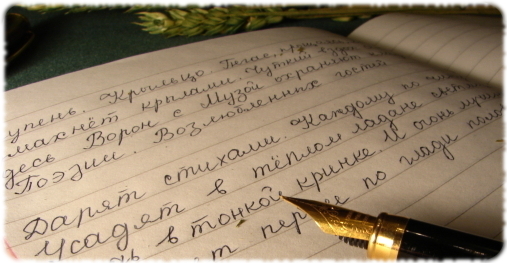 упень. Крыльцо.
махнёт крылами. Чуткий
десь Ворон с Музой охраняют
Поэзии. Возлюбленных гостей
Дарят стихами. Каждому по
Усадят в тёплом ладане
в тонкой кринке И огонь
по глади